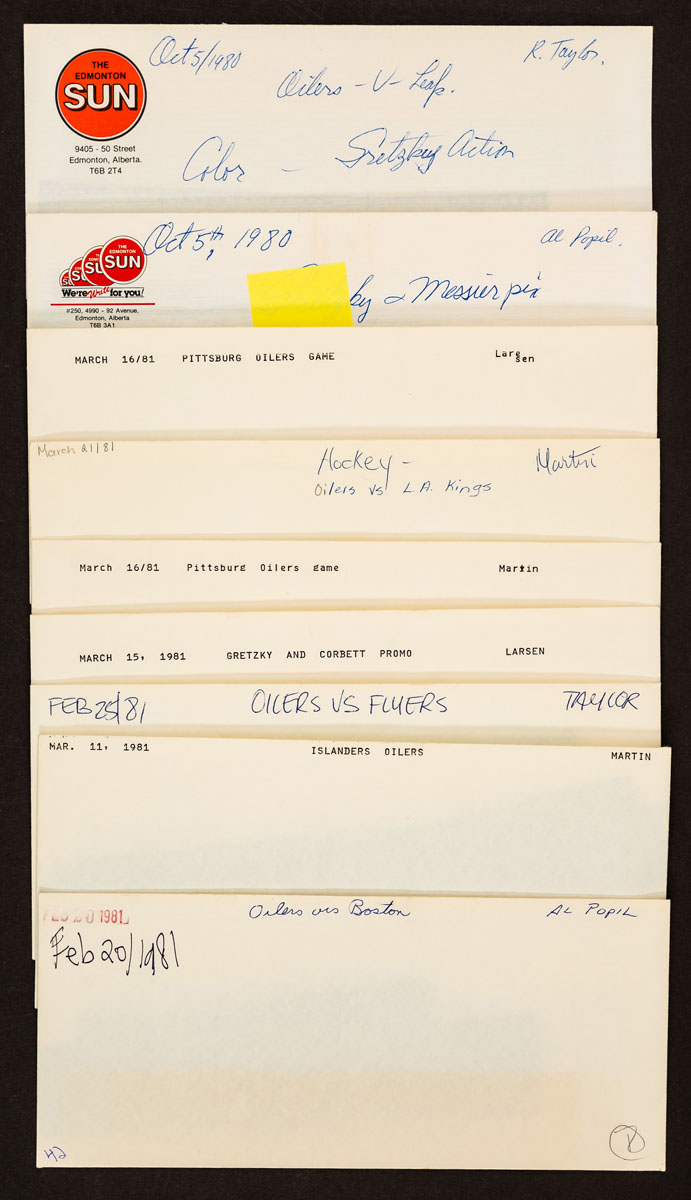 THE
EDMONTON
SUN
9405 - 50 Street
Edmonton, Alberta.
T6B 2T4
Oct 5/1980
R. Taylor.
Oilers - V - Leafs.
Color - Gretzky Action
THE
EDMONTON
SUN
We're Write for you!
#250, 4990 - 92 Avenue,
Edmonton, Alberta
T6B 3A1
Oct 5th, 1980
Al Popil.
ky & Messier pix
MARCH 16/81 PITTSBURG OILERS GAME Larsen
March 21/81
Hockey - Martin
Oilers vs L.A. Kings
March 16/81 Pittsburg Oilers game Martin
MARCH 15, 1981 GRETZKY AND CORBETT PROMO LARSEN
FEB 25/81 OILERS VS FLYERS TAYLOR
MAR. 11, 1981 ISLANDERS OILERS MARTIN
FEB 20 1981 Oilers vrs Boston AL POPIL
Feb 20/1981
42